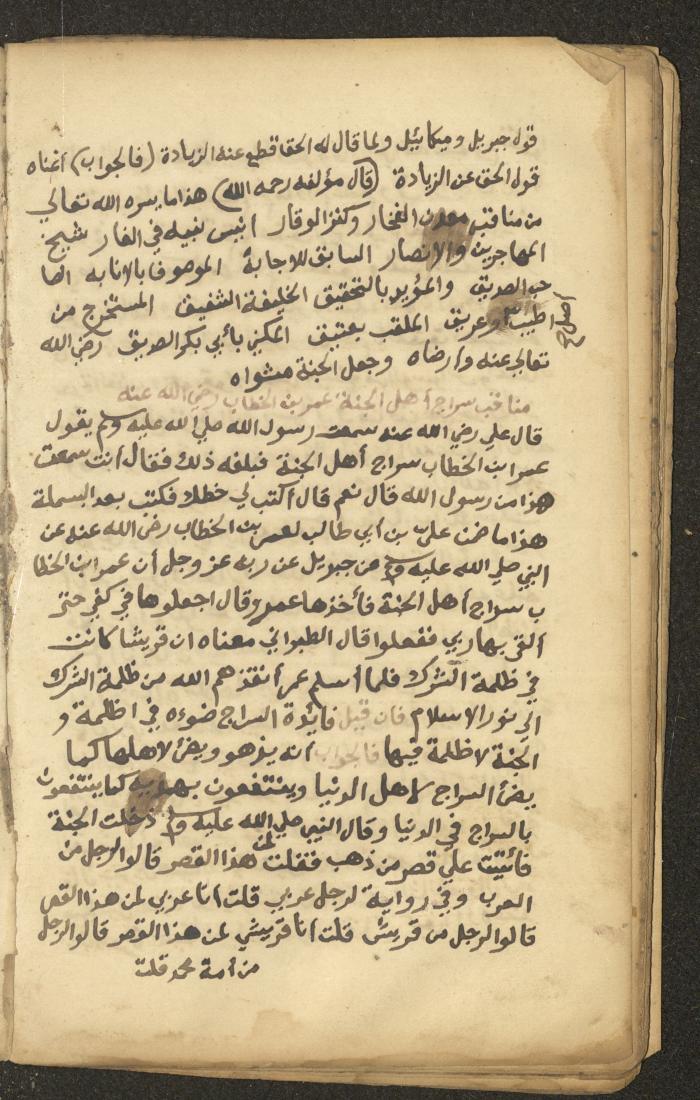 قول جبريل وميكائيل ولما قال له الحق قطع عنه الزيادة (فالجواب) أغناه
قول الحق عن الزيادة (قال مؤلفه رحمه الله) هذا ما يسره الله تعالى
من مناقب معدن الفخار وكنز الوقار أنيس نبيه في الغار شيخ
المهاجرين والانصار السابق للاجابة الموصوف بالانابه الصا
حب الصديق والمؤيد بالتحقيق الخليفة الشفيق المستخرج من
اطيب وعريق الملقب بعتيق المكني بأبي بكر الصديق رضي الله
أصل صح
تعالى عنه وأرضاه وجعل الجنة مثواه
مناقب سراج أهل الجنة عمر بن الخطاب رضي الله عنه
قال علي رضي الله عنه سمعت رسول الله صلي الله عليه وسلم يقول
عمر ابن الخطاب سراج أهل الجنة فبلغه ذلك فقال أنت سمعت
هذا من رسول الله قال نعم قال أكتب لي خطك فكتب بعد البسملة
هذا ما ضمن علي بن أبي طالب لعمر بن الخطاب رضي الله عنه عن
النبي صلي الله عليه وسلم عن جبريل عن ربه عز وجل أن عمر ابن الخطا
ب سراج أهل الجنة فأخذها عمر وقال اجعلوها في كفي حتى
ألقي بها ربي ففعلوا قال الطبراني معناه ان قريشا كانت
في ظلمة الشرك فلما أسلم عمر أنقذهم الله من ظلمة الشرك
الي نور الاسلام فان قيل فائدة السراج ضوءه في اظلمة و
الجنة لا ظلمة فيها فالجواب أنه يزهو ويضئ لاهلها كما
يضئ السراج لاهل الدنيا وينتفعون بهديه كما ينتفعون
بالسراج في الدنيا وقال النبي صلي الله عليه وسلم دخلت الجنة
فأتيت علي قصر من ذهب فقلت لمن هذا القصر قالوا لرجل من
العرب وفي رواية لرجل عربي قلت أنا عربي لمن هذا القصر
قالوا لرجل من قريش قلت أنا قريشي لمن هذا القصر قالوا لرجل
من أمة محمد قلت